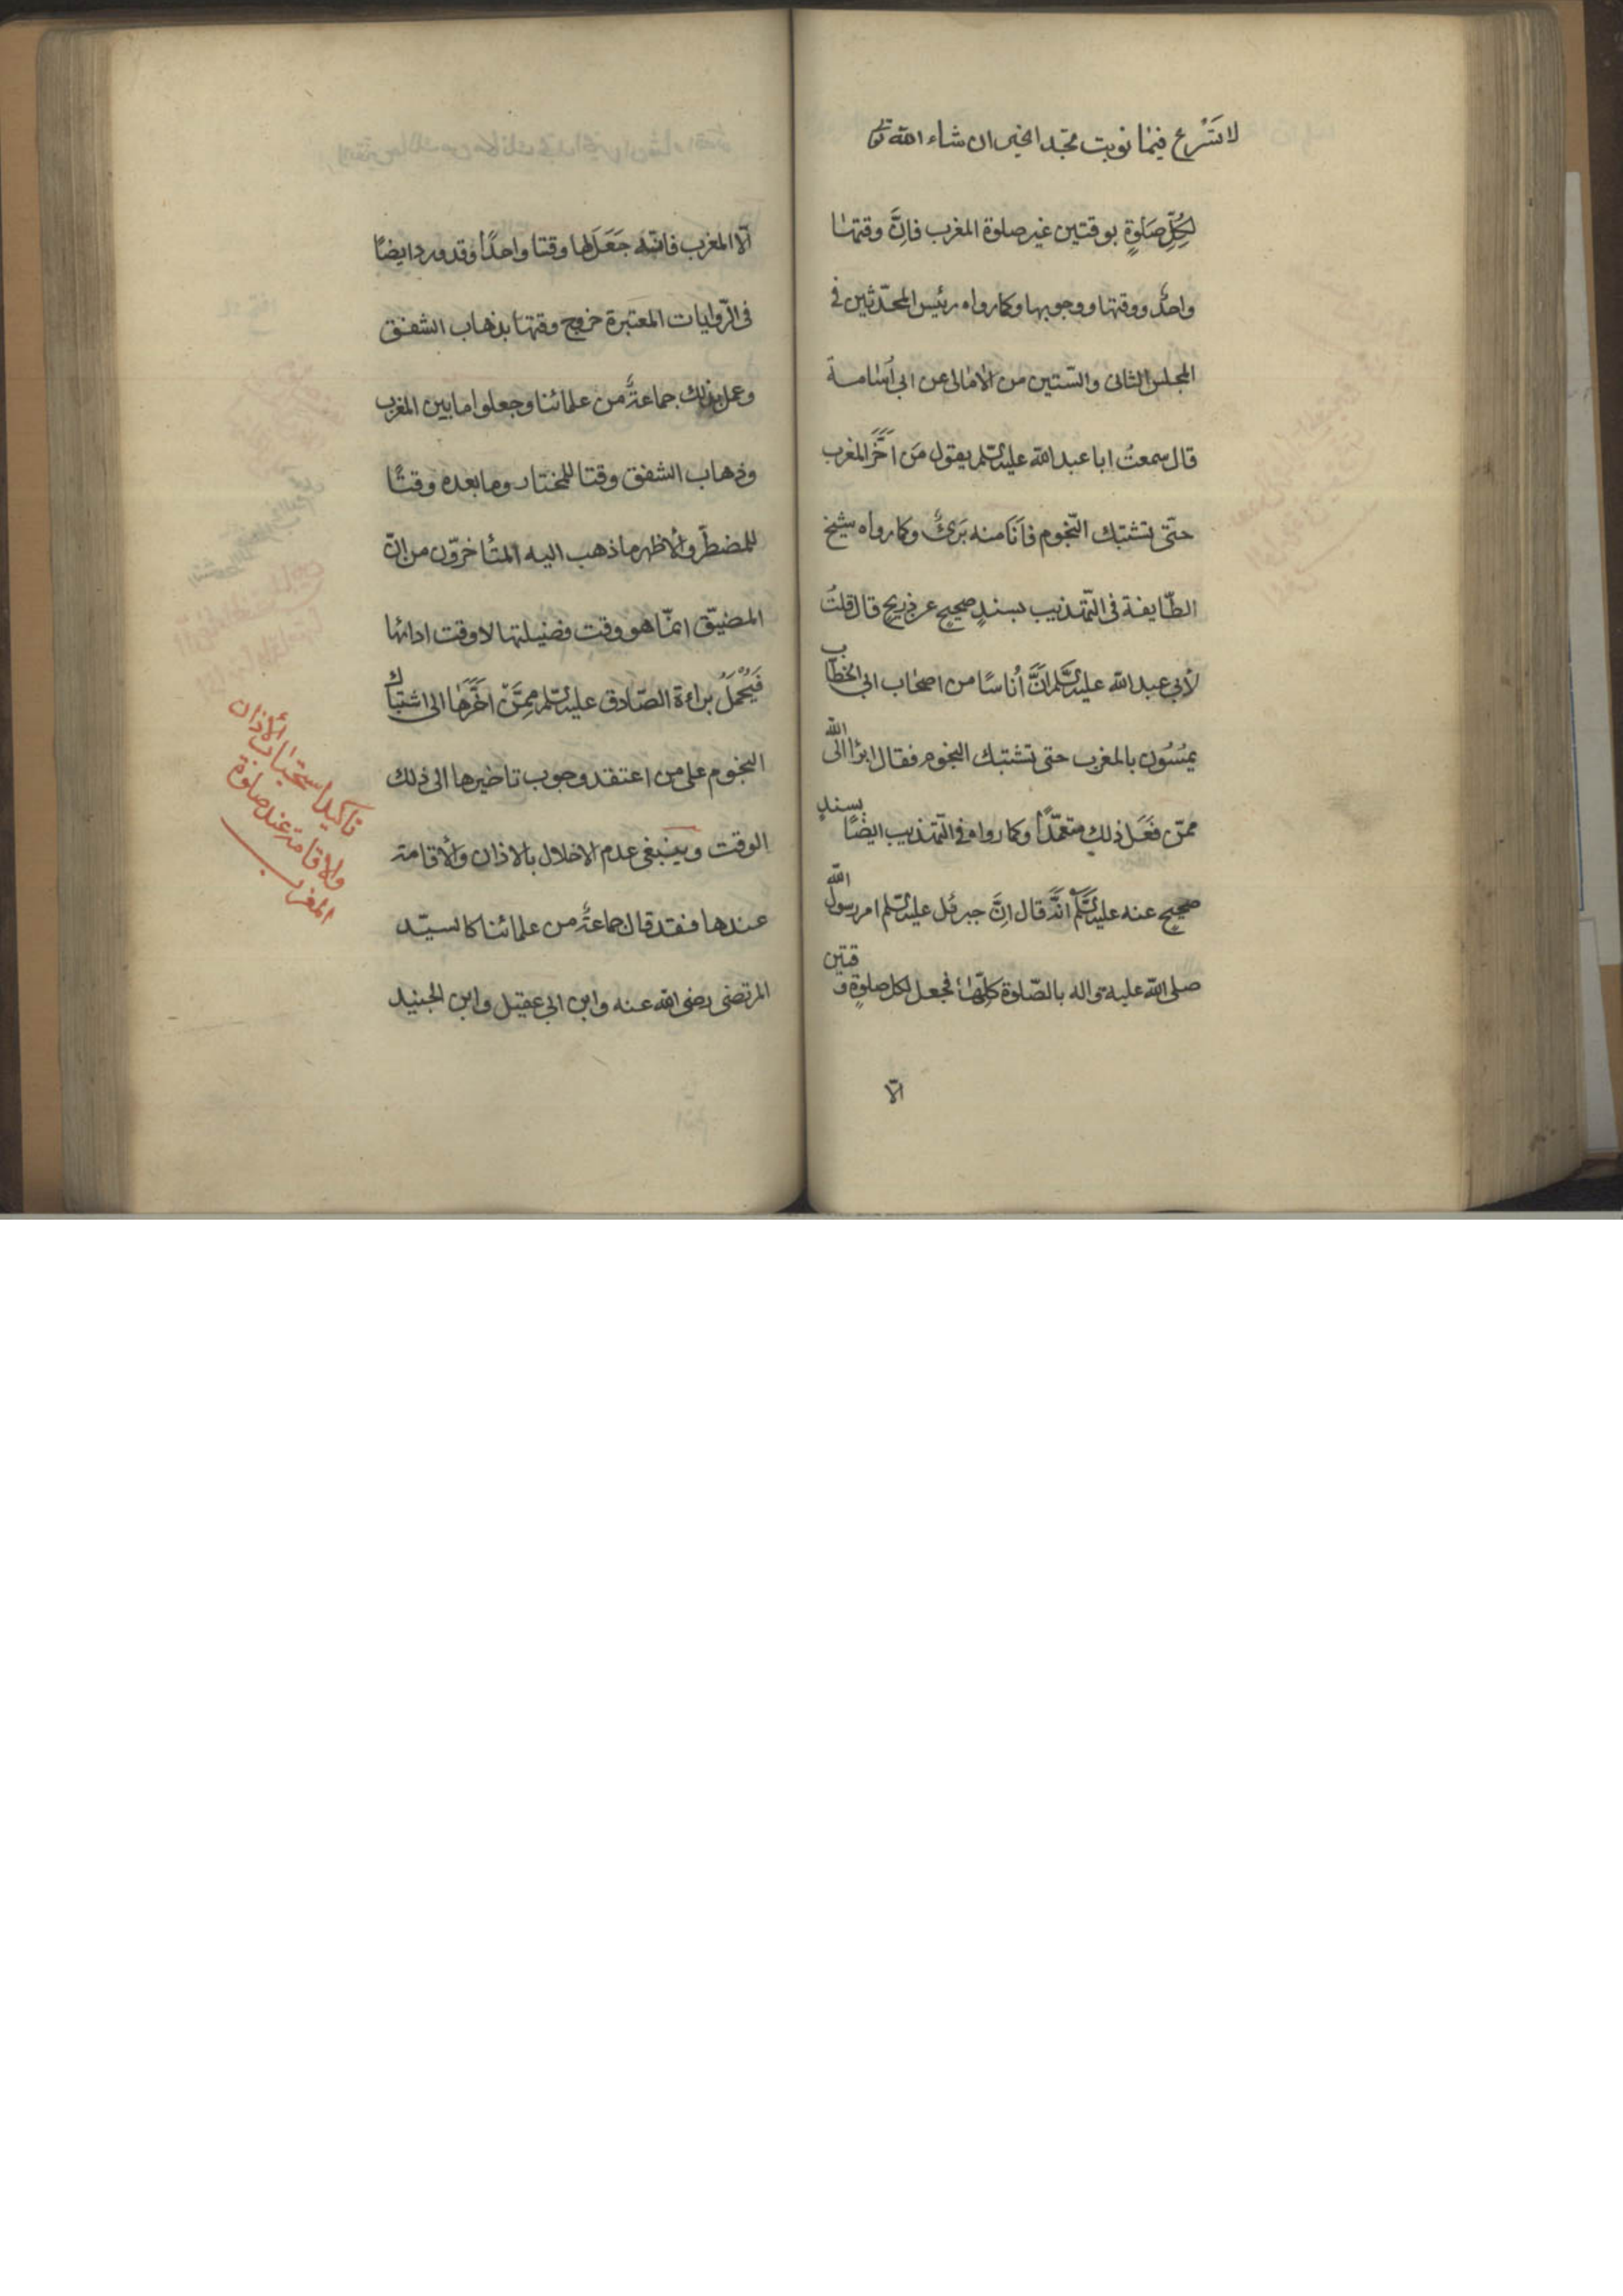 لا تَسْرع فيمٰا نويت تجد الخير ان شاء الله تع
لِكُلِّ صَلٰوةٍ بوقتين غير صلوة المغرب فاِنَّ وقتهٰا
واحدٌ ووقتها ووجوبها وكما رواه رئيس المحدّثين فى
المجلس الثانى والسّتين من الامالى عن ابى اُسٰامة
قال سمعتُ ابا عبد الله عليه السّلم يقول مَن اَخَّرَ المغرب
حتّى تشتبك النّجوم فاَنَا منه بَرىٌٔ وكما رواه شيخ
الطّايفة فى التّهذيب بسندٍ صحيح عن ذريحٍ قال قلتُ
لأبى عبد الله عليه السّلم اِنَّ أُناسًا من اصحٰاب ابى الخطّاب
يمْسُون بالمغرب حتى تشتبك النجوم فقال ابرٔا الى الله
ممّن فَعَلَ ذلك متعمّدًا وكما رواه فى التّهذيب ايضًا بسندٍ
صحيح عنه عليه السَّلم انَّه قال اِنَّ جبرئل عليه السّلم امر رسول الله
صلى الله عليه واله بالصّلوة كلِّهٰا فجعل لكل صلوةٍ وقتين
الّا
الّا المغرب فانّه جَعَلَ لها وقتا واحدًا وقد ورد ايضًا
فى الرّوايات المعتبرة خروج وقتها بذهاب الشفق
وعمل بذلك جماعةٌ من علمائنا وجعلوا ما بين المغرب
وذهاب الشفق وقتا للمختار وما بعده وقتًا
للمضطرّ والأظهر ما ذهب اليه المتأخّرون من انّ
المضيّق انمّا هو وقت فضيلتها لا وقت ادائها
فَيُحْمَلُ براءة الصّادق عليه السّلم مِمَّنْ اَخَّرَهٰا الى اشتباك
النجوم على من اعتقد وجوب تاخيرها الى ذلك
الوقت وينبغى عدم الاخلال بالاذان والأقامة
عندها فقد قال جماعةٌ من علمائنا كالسيّد
المرتضى رضى الله عنه وابن ابى عقيل وابن الجنيد
تاكيد استحباب الأذان
والاقامة عند صلوة
المغرب